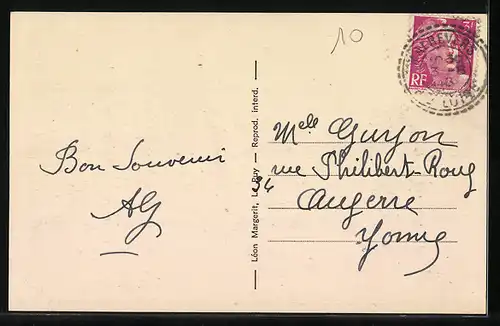 10
RF
LOIRE
Bon Souvenir
AG
Léon Margerit, Le Puy — Reprod. interd.
Melle Guyon
34 rue Philibert-Roug
Augerre
Yonne